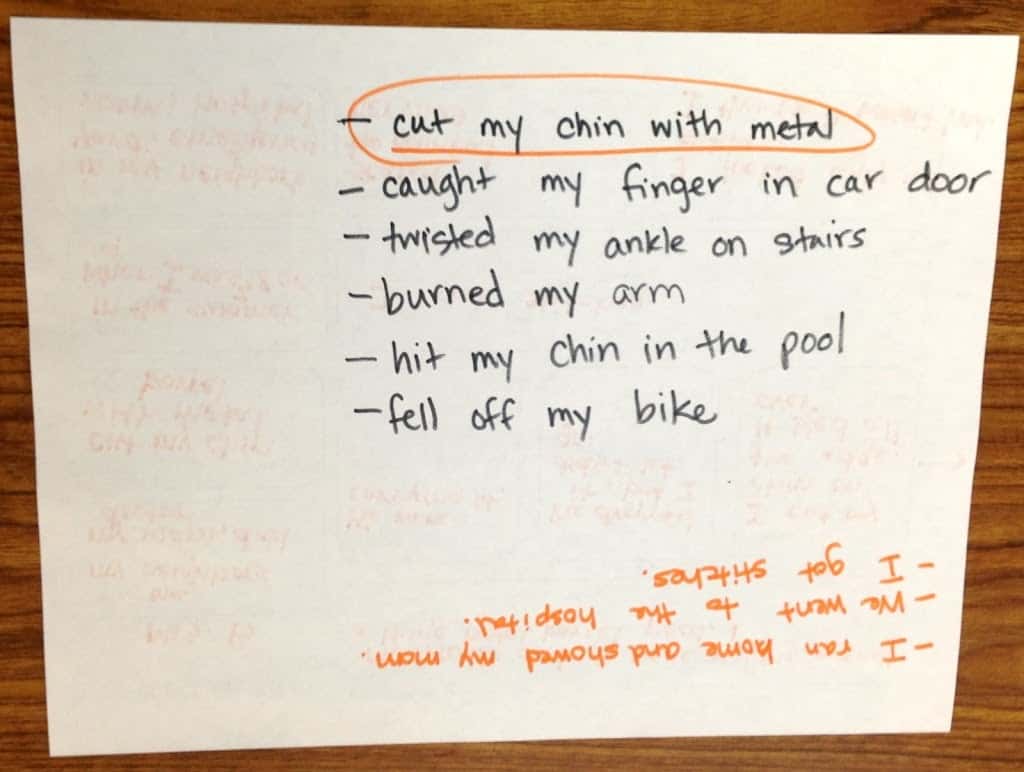 - cut my chin with metal
- caught my finger in car door
- twisted my ankle on stairs
- burned my arm
- hit my chin in the pool
- fell off my bike
- I ran home and showed my mom.
- We went to the hospital.
- I got stitches.